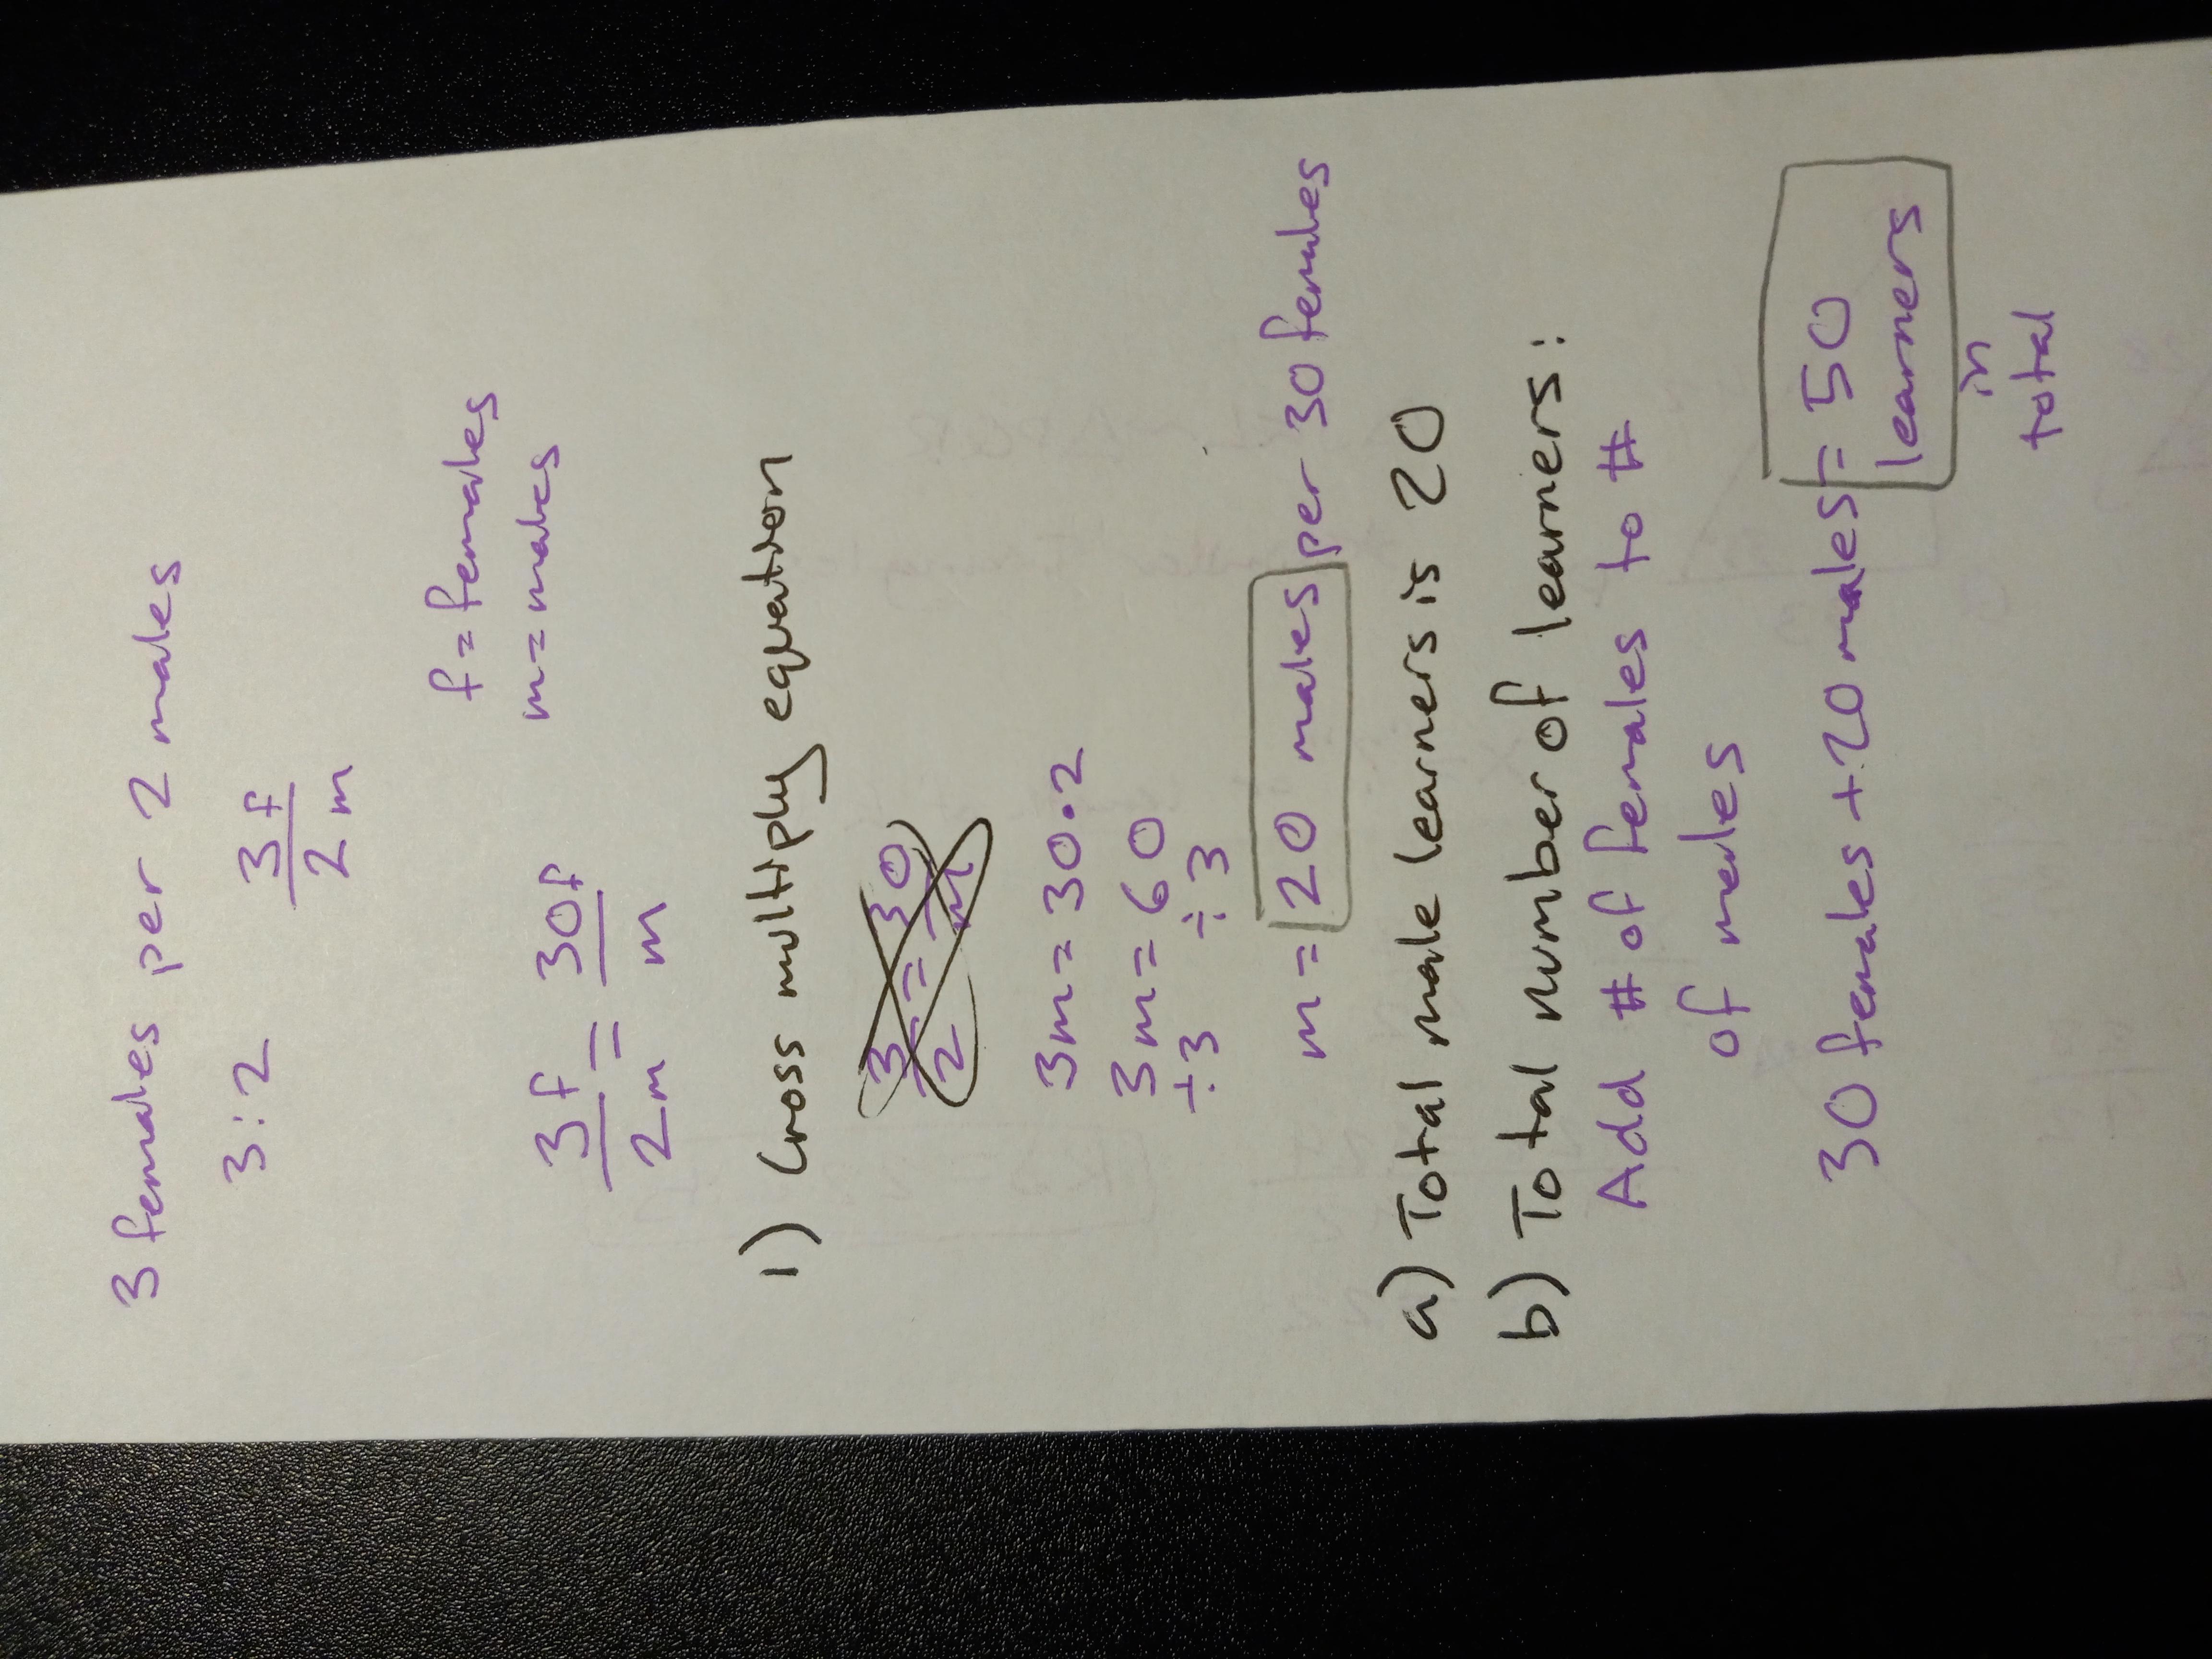 3 females per 2 males
3:2 3f/2m
f = females
m = males
3f/2m = 30f/m
1) Cross multiply equation
3/2 = 30/m
3m = 30·2
3m = 60
÷3 ÷3
m = 20 males per 30 females
a) Total male learners is 20
b) Total number of learners:
Add # of females to #
of males
30 females + 20 males = 50
learners
in
total